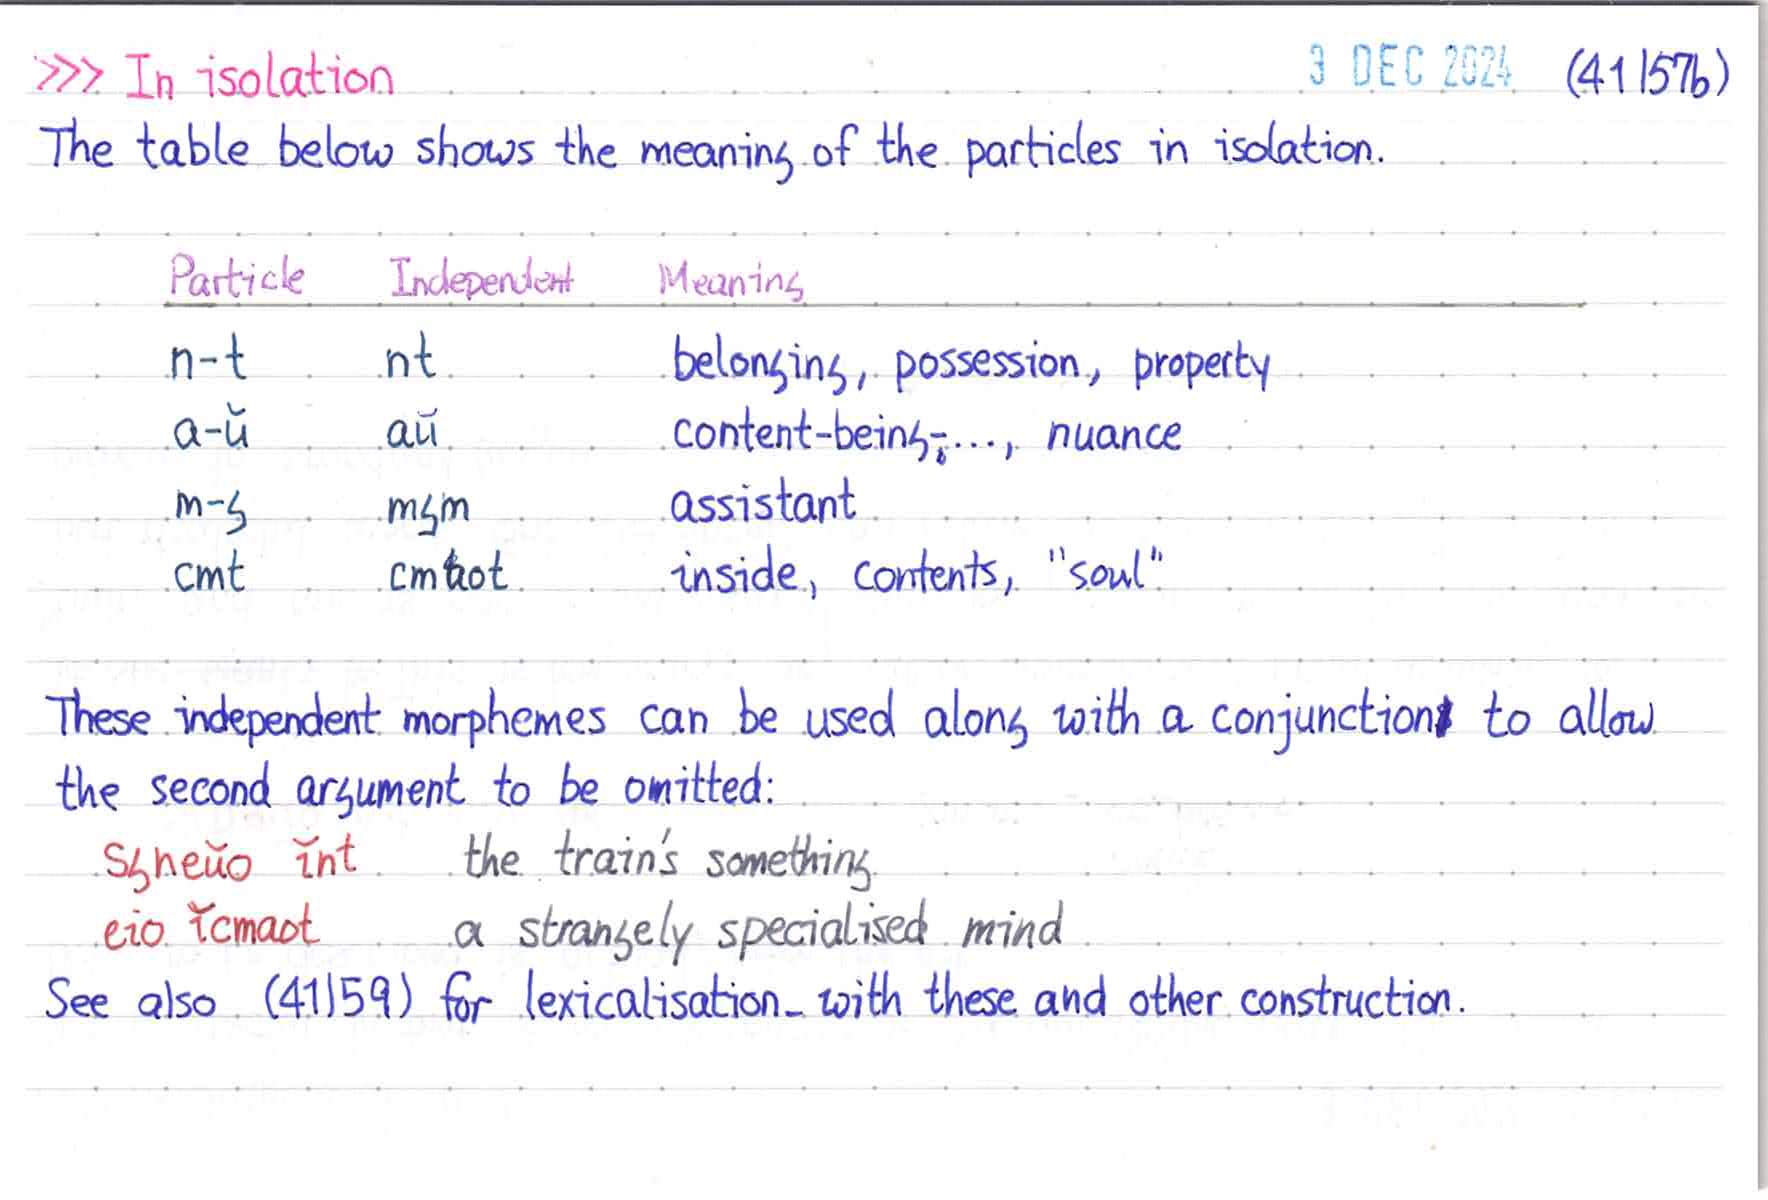 >>> In isolation 3 DEC 2024 (41|57b)
The table below shows the meaning of the particles in isolation.
Particle Independent Meaning
n-t nt belonging, possession, property
a-ŭ aŭ content-being-..., nuance
m-g mgm assistant
cmt cmaot inside, contents, "soul"
These independent morphemes can be used along with a conjunction to allow
the second argument to be omitted:
Sgneŭo ĭnt the train's something
eio ĭcmaot a strangely specialised mind
See also (41|59) for lexicalisation with these and other construction.